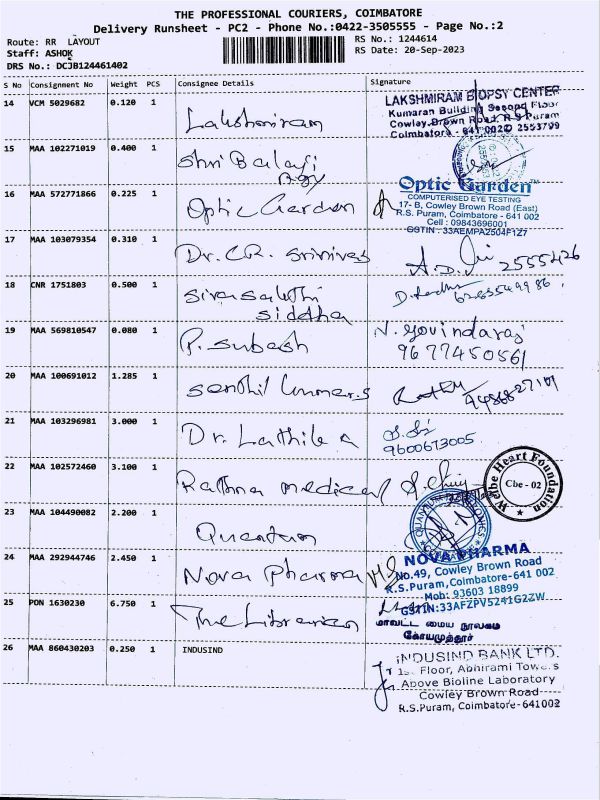 THE PROFESSIONAL COURIERS, COIMBATORE
Delivery Runsheet - PC2 - Phone No.:0422-3505555 - Page No.:2
Route: RR LAYOUT
RS No.: 1244614
Staff: ASHOK
RS Date: 20-Sep-2023
DRS No.: DCJB124461402
S No Consignment No Weight PCS Consignee Details Signature
14 VCM 5029682 0.120 1 Lakshmiram
LAKSHMIRAM BIOPSY CENTER
Kumaran Building Second Floor
Cowley Brown Road, R S Puram
Coimbatore - 641 002 2553799
15 MAA 102271019 0.400 1 Shri Balaji
16 MAA 572771866 0.225 1 Optic Garden
Optic Garden
COMPUTERISED EYE TESTING
17- B, Cowley Brown Road (East)
R.S. Puram, Coimbatore - 641 002
Cell : 09843696001
GSTIN : 33AEMPA2504F1Z7
17 MAA 103079354 0.310 1 Dr. C.R. Srinivas
2555426
18 CNR 1751803 0.500 1 Sivasakthi
Siddha
19 MAA 569810547 0.080 1 P. Subash
N. Govindaraj
9677450561
20 MAA 100691012 1.285 1 Senthil Kumar.S
21 MAA 103296981 3.000 1 Dr. Lathika
9600673005
22 MAA 102572460 3.100 1 Rathna medical
Welbe Heart Foundation
Cbe - 02
23 MAA 104490082 2.200 1 Quantum
24 MAA 292944746 2.450 1 Nova Pharma
NOVA PHARMA
No.49, Cowley Brown Road
R.S.Puram, Coimbatore-641 002
Mob: 93603 18899
GSTIN:33AFZPV5241G2ZW
25 PON 1630230 6.750 1 The Librarian
மாவட்ட மைய நூலகம்
கோயமுத்தூர்
26 MAA 860430203 0.250 1 INDUSIND
INDUSIND BANK LTD.
1st Floor, Abhirami Towers
Above Bioline Laboratory
Cowley Brown Road
R.S.Puram, Coimbatore-641002